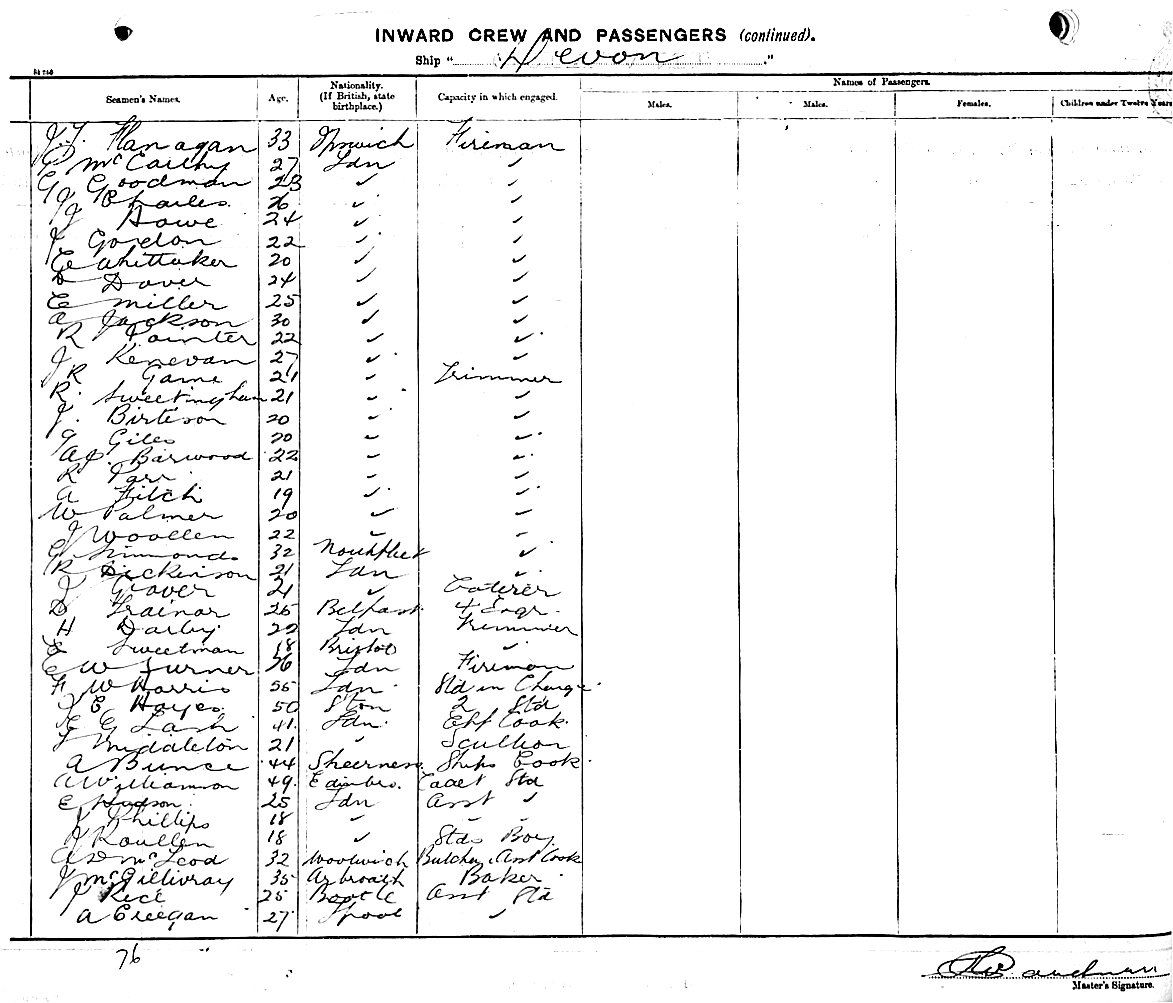 INWARD CREW AND PASSENGERS (continued).
Ship " Devon ."
Seamen's Names. Age. Nationality. (If British, state birthplace.) Capacity in which engaged. Names of Passengers.
Males. Males. Females. Children under Twelve Years
J. T. Flanagan 33 Ipswich Fireman
McCarthy 27 Ldn ✓
G Goodman 23 ✓ ✓
J Charles 26 ✓ ✓
J Howe 24 ✓ ✓
J Gordon 22 ✓ ✓
E Whittaker 20 ✓ ✓
D Dover 24 ✓ ✓
E Miller 25 ✓ ✓
A Jackson 30 ✓ ✓
R Painter 22 ✓ ✓
J Kenevan 27 ✓ ✓
J R Game 21 ✓ Trimmer
R. Sweetingham 21 ✓ ✓
J. Birteson 20 ✓ ✓
G Giles 20 ✓ ✓
Barwood 22 ✓ ✓
R Parr 21 ✓ ✓
A Fitch 19 ✓ ✓
W Palmer 20 ✓ ✓
J Woollen 22 ✓ ✓
G Simmonds 32 Northfleet ✓
R Dickinson 21 Ldn ✓
J Glover 21 ✓ Caterer
D Trainor 25 Belfast 4 Engr.
H Darby 22 Ldn Trimmer
E Sweetman 18 Bristol ✓
E W Turner 36 Ldn Fireman
F W Harris 55 Ldn. Std in Charge
J E Hayes 50 Ston 2 Std
E G Lash 41. Ldn. Cook.
Middleton 21 ✓ Scullion
A Bunce 44 Sheerness Ships Cook.
A Williamson 49. Edinbro. Cadet Std
E Hudson 25 Ldn Asst ✓
J Phillips 18 ✓ ✓ ✓
J Roullen 18 ✓ Stds Boy
A D McLeod 32 Woolwich Butcher, Asst Cook
J McGillivray 35 Arbroath Baker.
J Rece 25 Bootle Asst Std
A Creegan 27 Lpool ✓
76 "
Master's Signature.